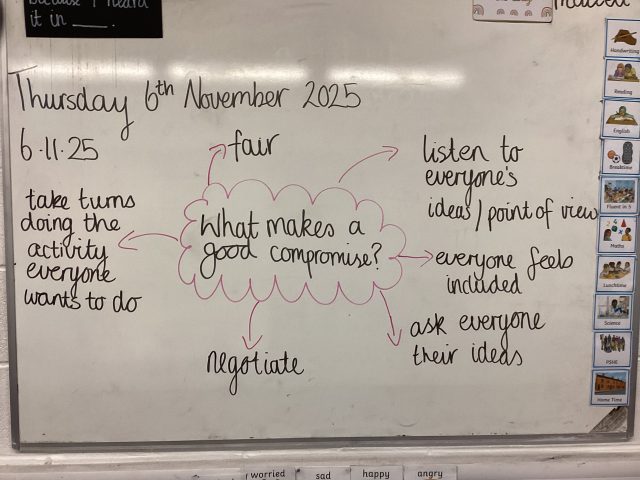 because I heard
it in ___.
Thursday 6th November 2025
6.11.25
fair
listen to
everyone's
ideas/point of view
take turns
doing the
activity
everyone
wants to do
What makes a
good compromise?
everyone feels
included
negotiate
ask everyone
their ideas
Handwriting
Reading
English
Breaktime
Fluent in 5
Maths
Lunchtime
Science
PSHE
Home Time
worried
sad
happy
angry